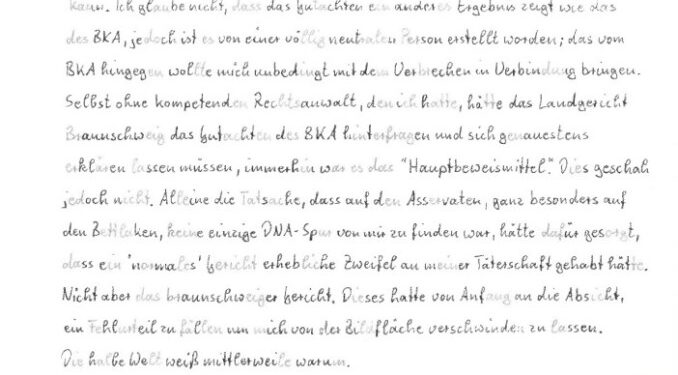 kann. Ich glaube nicht, dass das Gutachten ein anderes Ergebnis zeigt wie das
des BKA, jedoch ist es von einer völlig neutralen Person erstellt worden; das vom
BKA hingegen wollte mich unbedingt mit dem Verbrechen in Verbindung bringen.
Selbst ohne kompetenden Rechtsanwalt, den ich hatte, hätte das Landgericht
Braunschweig das Gutachten des BKA hinterfragen und sich genauestens
erklären lassen müssen, immerhin war es das "Hauptbeweismittel". Dies geschah
jedoch nicht. Alleine die Tatsache, dass auf den Asservaten, ganz besonders auf
den Bettlaken, keine einzige DNA-Spur von mir zu finden war, hätte dafür gesorgt,
dass ein 'normales' Gericht erhebliche Zweifel an meiner Täterschaft gehabt hätte.
Nicht aber das Braunschweiger Gericht. Dieses hatte von Anfang an die Absicht,
ein Fehlurteil zu fällen um mich von der Bildfläche verschwinden zu lassen.
Die halbe Welt weiß mittlerweile warum.